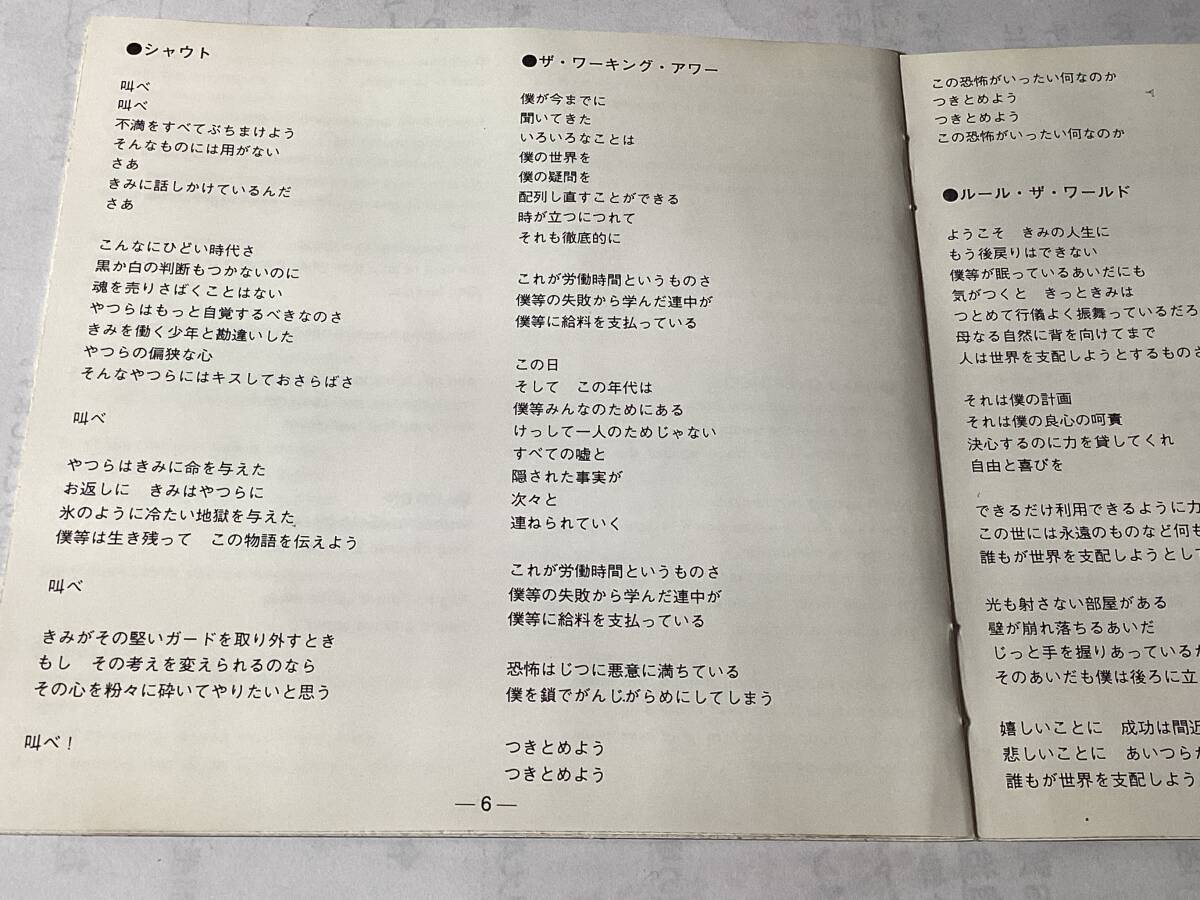 ●シャウト
叫べ
叫べ
不満をすべてぶちまけよう
そんなものには用がない
さあ
きみに話しかけているんだ
さあ
こんなにひどい時代さ
黒か白の判断もつかないのに
魂を売りさばくことはない
やつらはもっと自覚するべきなのさ
きみを働く少年と勘違いした
やつらの偏狭な心
そんなやつらにはキスしておさらばさ
叫べ
やつらはきみに命を与えた
お返しに　きみはやつらに
氷のように冷たい地獄を与えた
僕等は生き残って　この物語を伝えよう
叫べ
きみがその堅いガードを取り外すとき
もし　その考えを変えられるのなら
その心を粉々に砕いてやりたいと思う
叫べ！
●ザ・ワーキング・アワー
僕が今までに
聞いてきた
いろいろなことは
僕の世界を
僕の疑問を
配列し直すことができる
時が立つにつれて
それも徹底的に
これが労働時間というものさ
僕等の失敗から学んだ連中が
僕等に給料を支払っている
この日
そして　この年代は
僕等みんなのためにある
けっして一人のためじゃない
すべての嘘と
隠された事実が
次々と
連ねられていく
これが労働時間というものさ
僕等の失敗から学んだ連中が
僕等に給料を支払っている
恐怖はじつに悪意に満ちている
僕を鎖でがんじがらめにしてしまう
つきとめよう
つきとめよう
—6—
この恐怖がいったい何なのか
つきとめよう
つきとめよう
この恐怖がいったい何なのか
●ルール・ザ・ワールド
ようこそ　きみの人生に
もう後戻りはできない
僕等が眠っているあいだにも
気がつくと　きっときみは
つとめて行儀よく振舞っているだろ
母なる自然に背を向けてまで
人は世界を支配しようとするものさ
それは僕の計画
それは僕の良心の呵責
決心するのに力を貸してくれ
自由と喜びを
できるだけ利用できるように力
この世には永遠のものなど何も
誰もが世界を支配しようとして
光も射さない部屋がある
壁が崩れ落ちるあいだ
じっと手を握りあっているか
そのあいだも僕は後ろに立
嬉しいことに　成功は間近
悲しいことに　あいつらが
誰もが世界を支配しよう